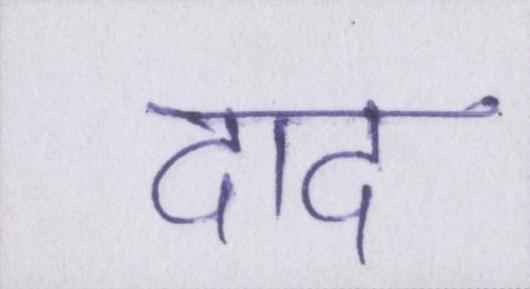 दाद